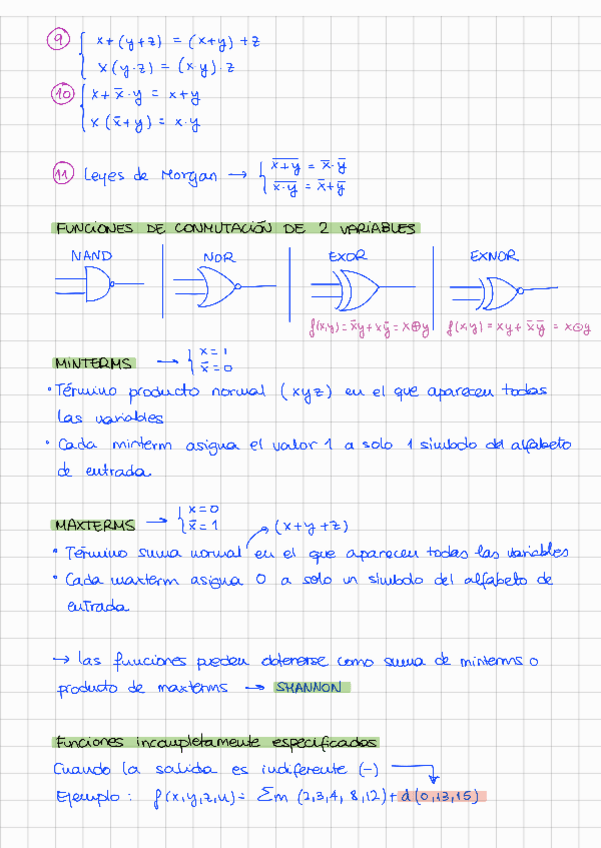 9 { x+(y+z) = (x+y)+z
x(y·z) = (x·y)·z
10 { x+x̄·y = x+y
x(x̄+y) = x·y
11 Leyes de Morgan → { \overline{x+y} = x̄·ȳ
\overline{x·y} = x̄+ȳ
FUNCIONES DE CONMUTACIÓN DE 2 VARIABLES
NAND NOR EXOR EXNOR
f(x,y) = x̄y+xȳ = x⊕y f(x,y) = xy+x̄ȳ = x⊙y
MINTERMS → { x=1
x̄=0
• Término producto normal (xyz) en el que aparecen todas
las variables
• Cada minterm asigna el valor 1 a solo 1 simbolo del alfabeto
de entrada
MAXTERMS → { x=0
x̄=1
(x+y+z)
• Término suma normal en el que aparecen todas las variables
• Cada maxterm asigna 0 a solo un simbolo del alfabeto de
entrada
→ las funciones pueden obtenerse como suma de minterms o
producto de maxterms → SHANNON
Funciones incompletamente especificadas
Cuando la salida es indiferente (-)
Ejemplo: f(x,y,z,u) = Σm (2,3,4,8,12)+d(0,13,15)